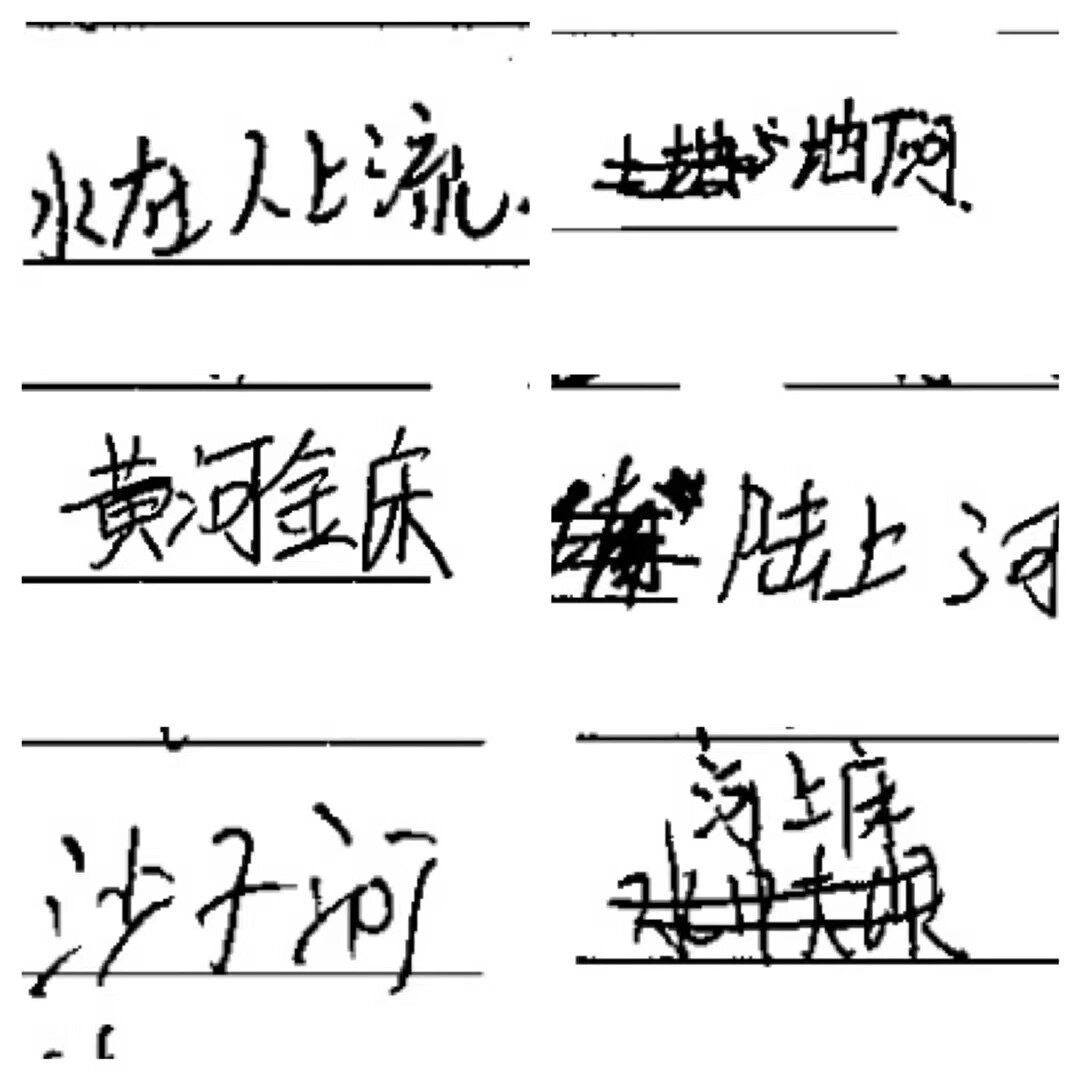 水在人上流.
地顶.
黄河金床
陆上河
沙子河
河上床